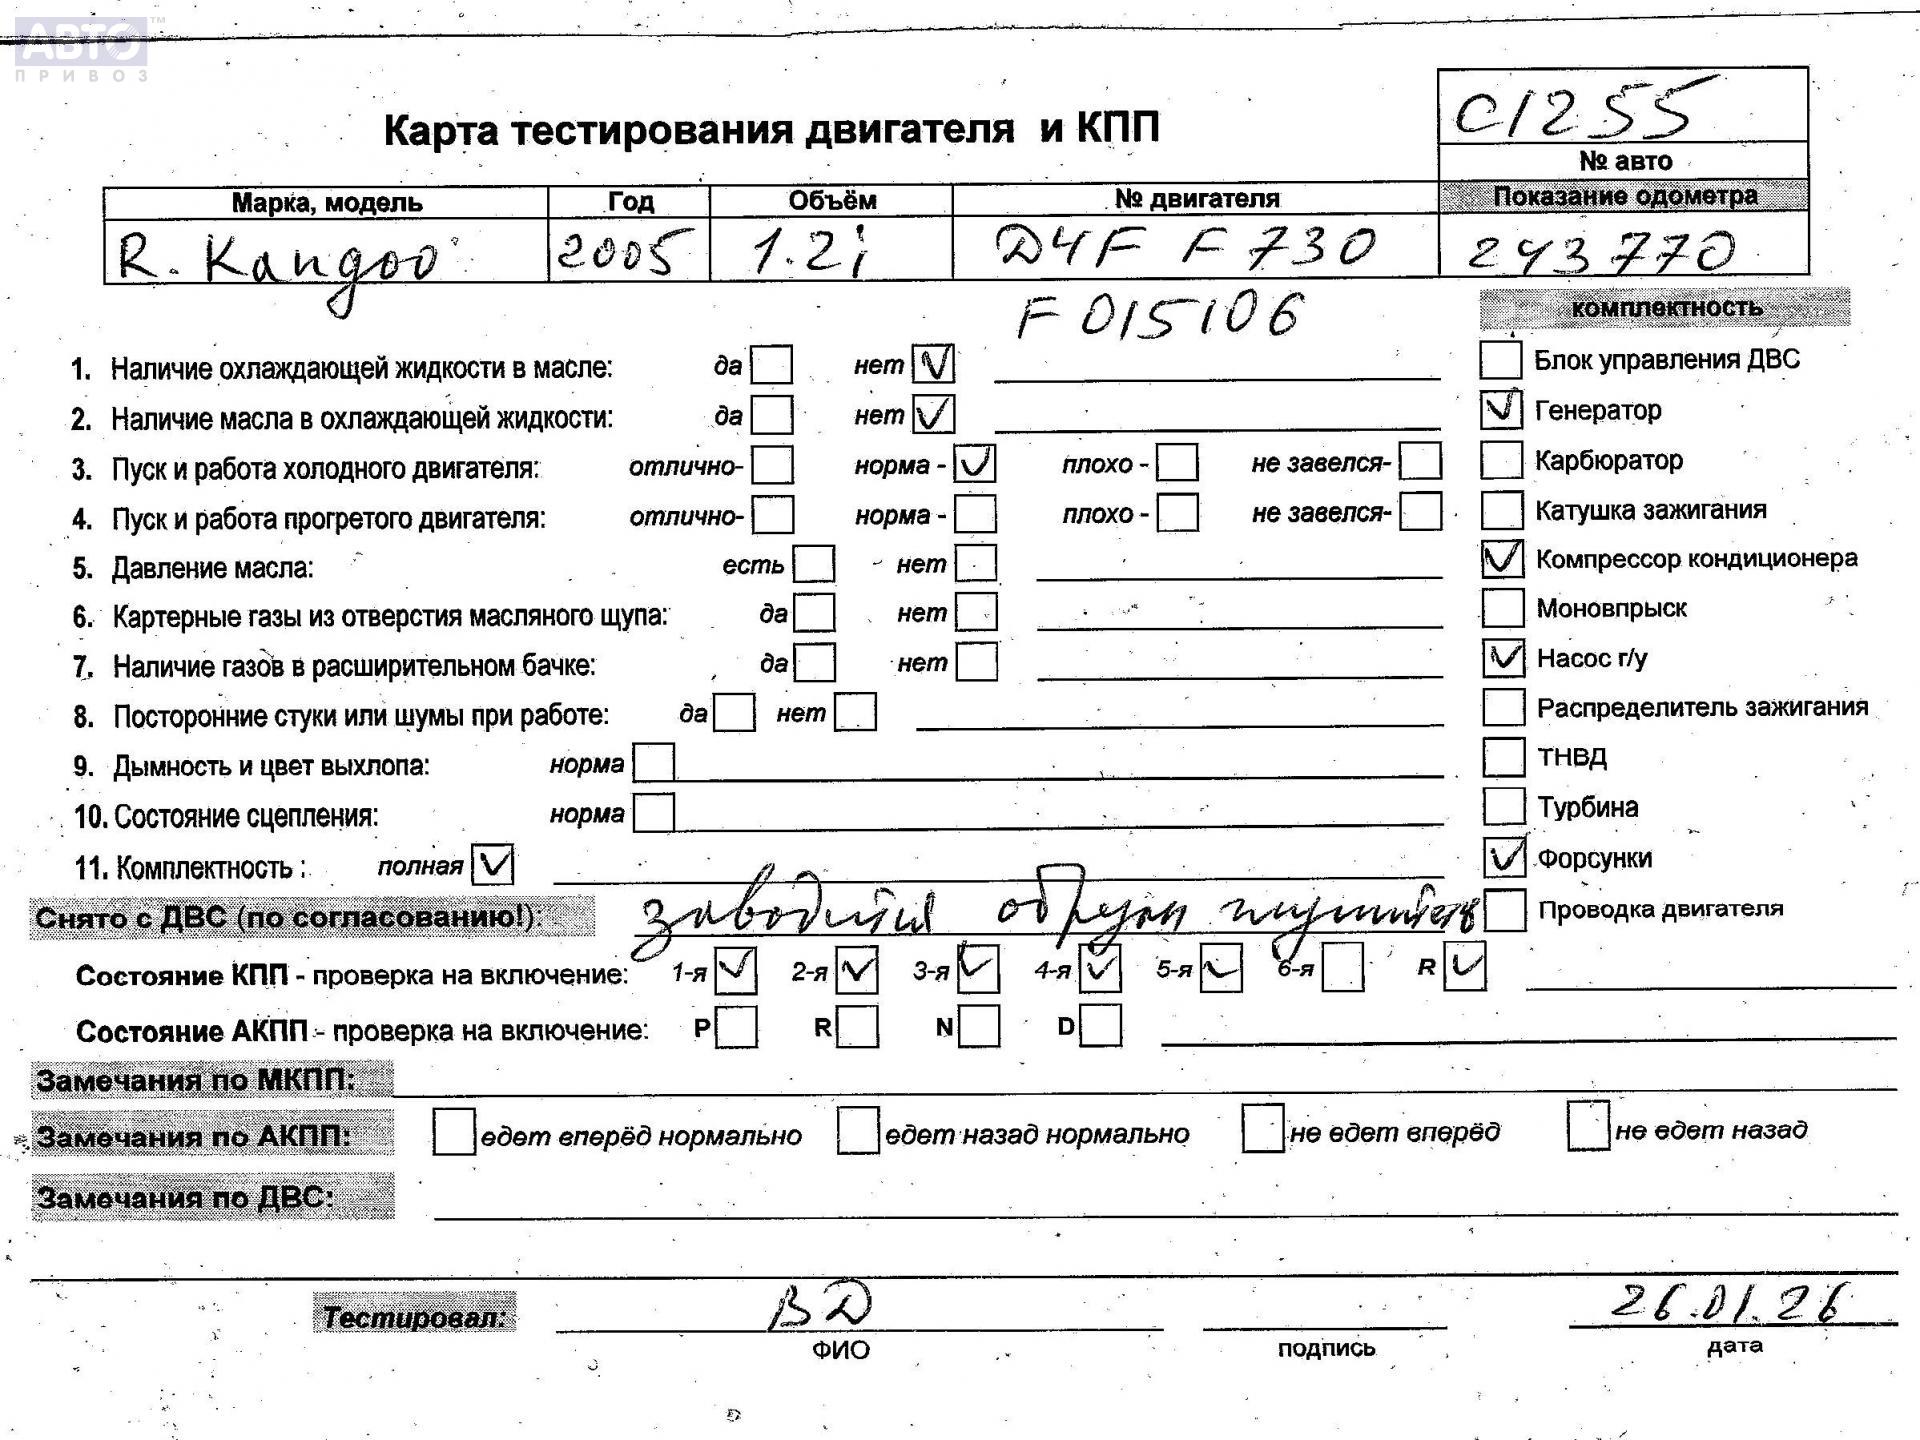 АВТО™
ПРИВОЗ
С1255
Карта тестирования двигателя и КПП
№ авто
Марка, модель Год Объём № двигателя Показание одометра
R. Kangoo 2005 1.2i D4F F730 243770
F015106
комплектность
1. Наличие охлаждающей жидкости в масле: да нет ✓ Блок управления ДВС
2. Наличие масла в охлаждающей жидкости: да нет ✓ ✓ Генератор
3. Пуск и работа холодного двигателя: отлично- норма - ✓ плохо - не завелся- Карбюратор
4. Пуск и работа прогретого двигателя: отлично- норма - плохо - не завелся- Катушка зажигания
5. Давление масла: есть нет ✓ Компрессор кондиционера
6. Картерные газы из отверстия масляного щупа: да нет Моновпрыск
7. Наличие газов в расширительном бачке: да нет ✓ Насос г/у
8. Посторонние стуки или шумы при работе: да нет Распределитель зажигания
9. Дымность и цвет выхлопа: норма ТНВД
10. Состояние сцепления: норма Турбина
11. Комплектность : полная ✓ ✓ Форсунки
Снято с ДВС (по согласованию!): заводится Проводка двигателя
Состояние КПП - проверка на включение: 1-я ✓ 2-я ✓ 3-я ✓ 4-я ✓ 5-я ✓ 6-я R ✓
Состояние АКПП - проверка на включение: P R N D
Замечания по МКПП:
Замечания по АКПП: едет вперёд нормально едет назад нормально не едет вперёд не едет назад
Замечания по ДВС:
Тестировал: ВД 26.01.26
ФИО подпись дата